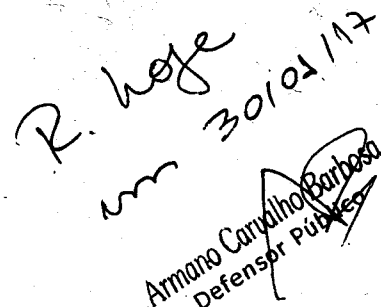 R. hoje
em 30/01/17
Armano Carvalho Barbosa
Defensor Público